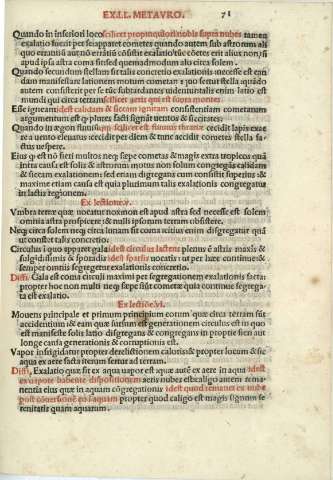 EX.I.L. METAVRO. 71
Quando in inferiori loco scilicet propinquiori nobis supra nubes tamen
exalatio fuerit per se apparet cometes quando autem sub astrorum ali
quo errantiũ aut nõ errantiũ cõsistit exalatio tũc cõetes erit alicui; non
apud ipsa astra coma sit sed quemadmodum alo circa solem.
Quando secundum stellam sit talis concretio exalationis necesse est ean
dam manifestari lationem motum cometam quo fertur stella quando
autem consistit per se tũc subtardantes videnturitalis enim latio est
mundi qui circa terram scilicet aeris qui est supra montes
Esse igneam idest calidam & siccam igneam consistentiam cometarum
argumentum est q plures facti signãt ventos & siccitates.
Quando in egon flauis cecidit lapis exaere
a vento eleuatus cecidit per diem & tunc accidit cometes stella fa
ctus vespere.
Eius q est nõ fieri multos neq; sæpe cometas & magis extra tropicos quã
intra causa est solis & astrorum motus non solum congregãs calidum
& siccum exalationem sed etiam disgregans cum consistit superius : &
maxime etiam causa est quia plurimum talis exalationis congregatur
in lactis regionem.
Ex lectione.v.
Vmbra terræ quæ vocatur nox non est apud astra sed necesse est solem
omnia astra perspicere : & nullis ipsorum terram obsistere.
Neq; circa solem neq; circa lunam sit coma citius enim disgregatur quã
ut constet talis concretio.
Circulus in quo apparet gala idest circulus lacteus plenus est altris maxis &
fulgidissimis & sporadis idest sparsis vocatis : ut per hæc continue : &
semper omnis segregetur exalationis concretio.
Diffi. Gala est coma circuli maximi per segregationem exalationis facta:
propter hoc non multi neq; sæpe sũt cometæ quia continue segrega
ta est exalatio.
Ex lectiõe.vi.
Mouens principale et primum principium eorum quæ circa terram fũt
accidentium & eam quæ sursum est generationem circulus est in quo
est manifeste solis latio disgregans & congregans in propiue fieri aut
longe causa generationis & corruptionis est.
Vapor infrigidatur propter derelictionem caloris & propter locum & se
aqua ex aere facta iterum fertur ad terram.
Diffi, Exalatio quæ fit ex aqua vapor est : quæ autẽ ex aere in aqua idest
ex vapore habente dispositionem aeris nubes est: caligo autem rema
nentia eius quæ in aquam cõgregationis idest quod remanet ex nube
post cõuersionẽ eõ ĩ aquam propter quod caligo est magis signum se
renitatis quam aquarum.